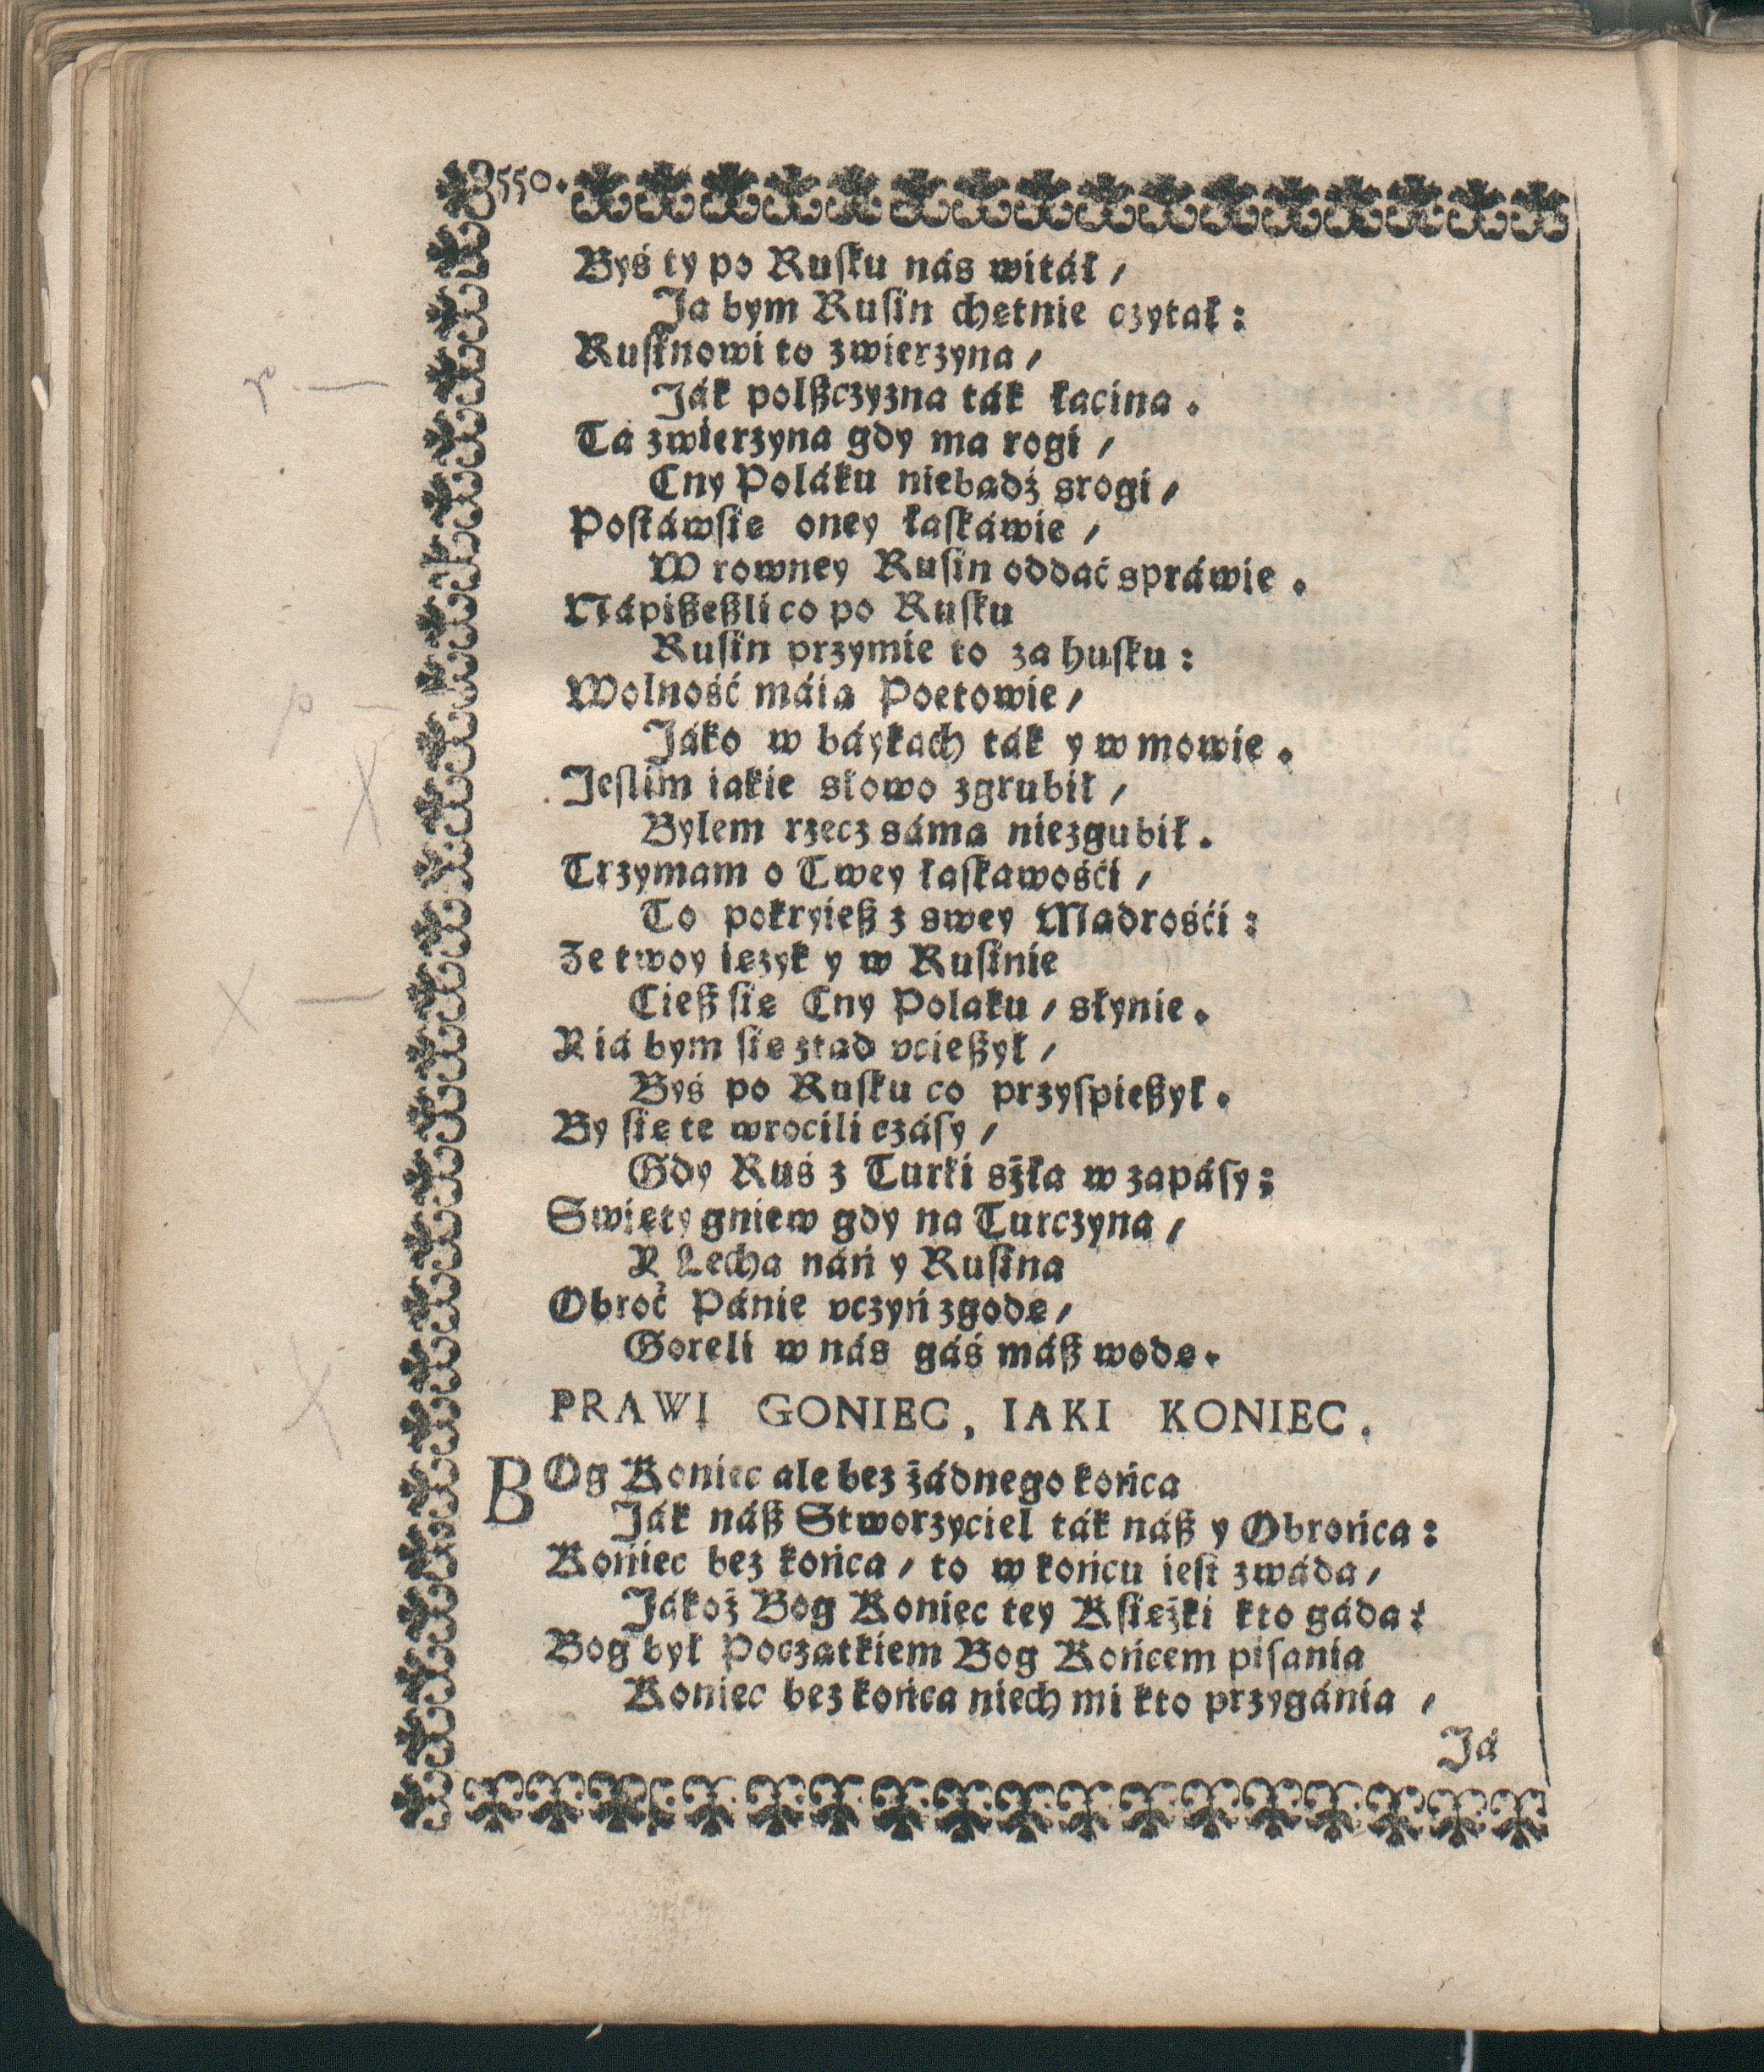 550.
Byś ty po Ruſku nás witáł /
Ja bym Ruſin chętnie czytał :
Ruſinowi to zwierzyna /
Ják polßczyzna ták łacina .
Tá zwierzyna gdy ma rogi /
Cny Poláku niebądź srogi /
Poſtáwſie oney łaſkáwie /
W rowney Ruſin oddać spráwie .
Nápißeßli co po Ruſku
Ruſin przymie to za huſku :
Wolność máią Poetowie /
Jáko w báykach ták y w mowie .
Jeſlim iakie słowo zgrubił /
Bylem rzecz sámą niezgubił .
Trzymam o Twey łaſkawośći /
To pokryieß z swey Mądrośći :
Ze twoy ięzyk y w Ruſinie
Cieß ſię Cny Polaku / słynie .
Y iá bym ſię ztąd vcießył /
Byś po Ruſku co przyſpießył .
By ſię te wrocili czáſy /
Gdy Ruś z Turki sżła w zapáſy ;
Swięty gniew gdy na Turczyna /
Y Lecha náń y Ruſina
Obroć Pánie vczyń zgodę /
Goreli w nás gáś máß wodę .
PRAWI GONIEC, IAKI KONIEC.
BOg Koniec ale bez żádnego końca
Ják náß Stworzyciel ták náß y Obrońca :
Końiec bez końca / to w końcu ieſt zwáda /
Jákoż Bog Koniec tey Kſiężki kto gáda :
Bog był Początkiem Bog Końcem piſania
Koniec bez końca niech mi kto przygánia /
Já